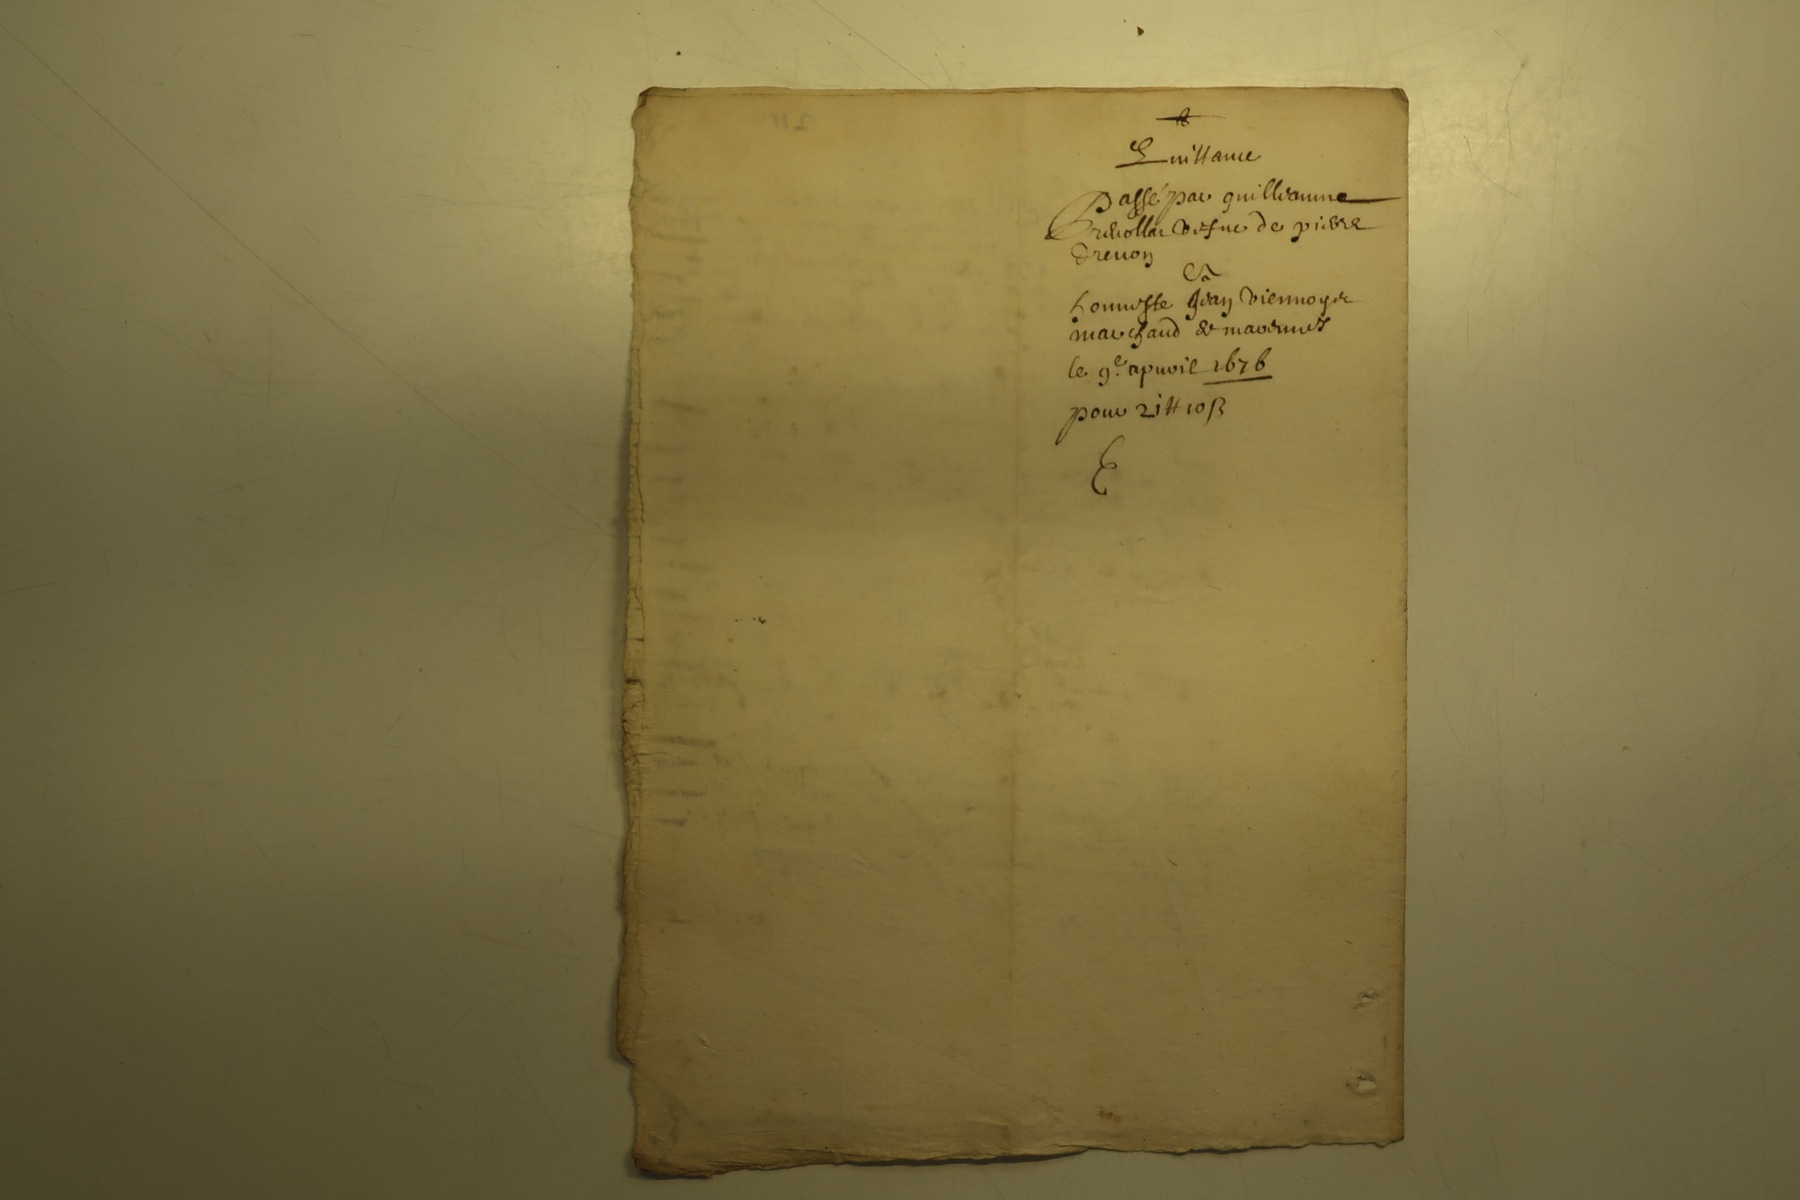 Quittance
Passé par guilleaume
vefue de pierre
Drevon
A
honneste Jean Viennoys
marchand de
le 9e apuril 1676
pour 21 ₶ 10 ß